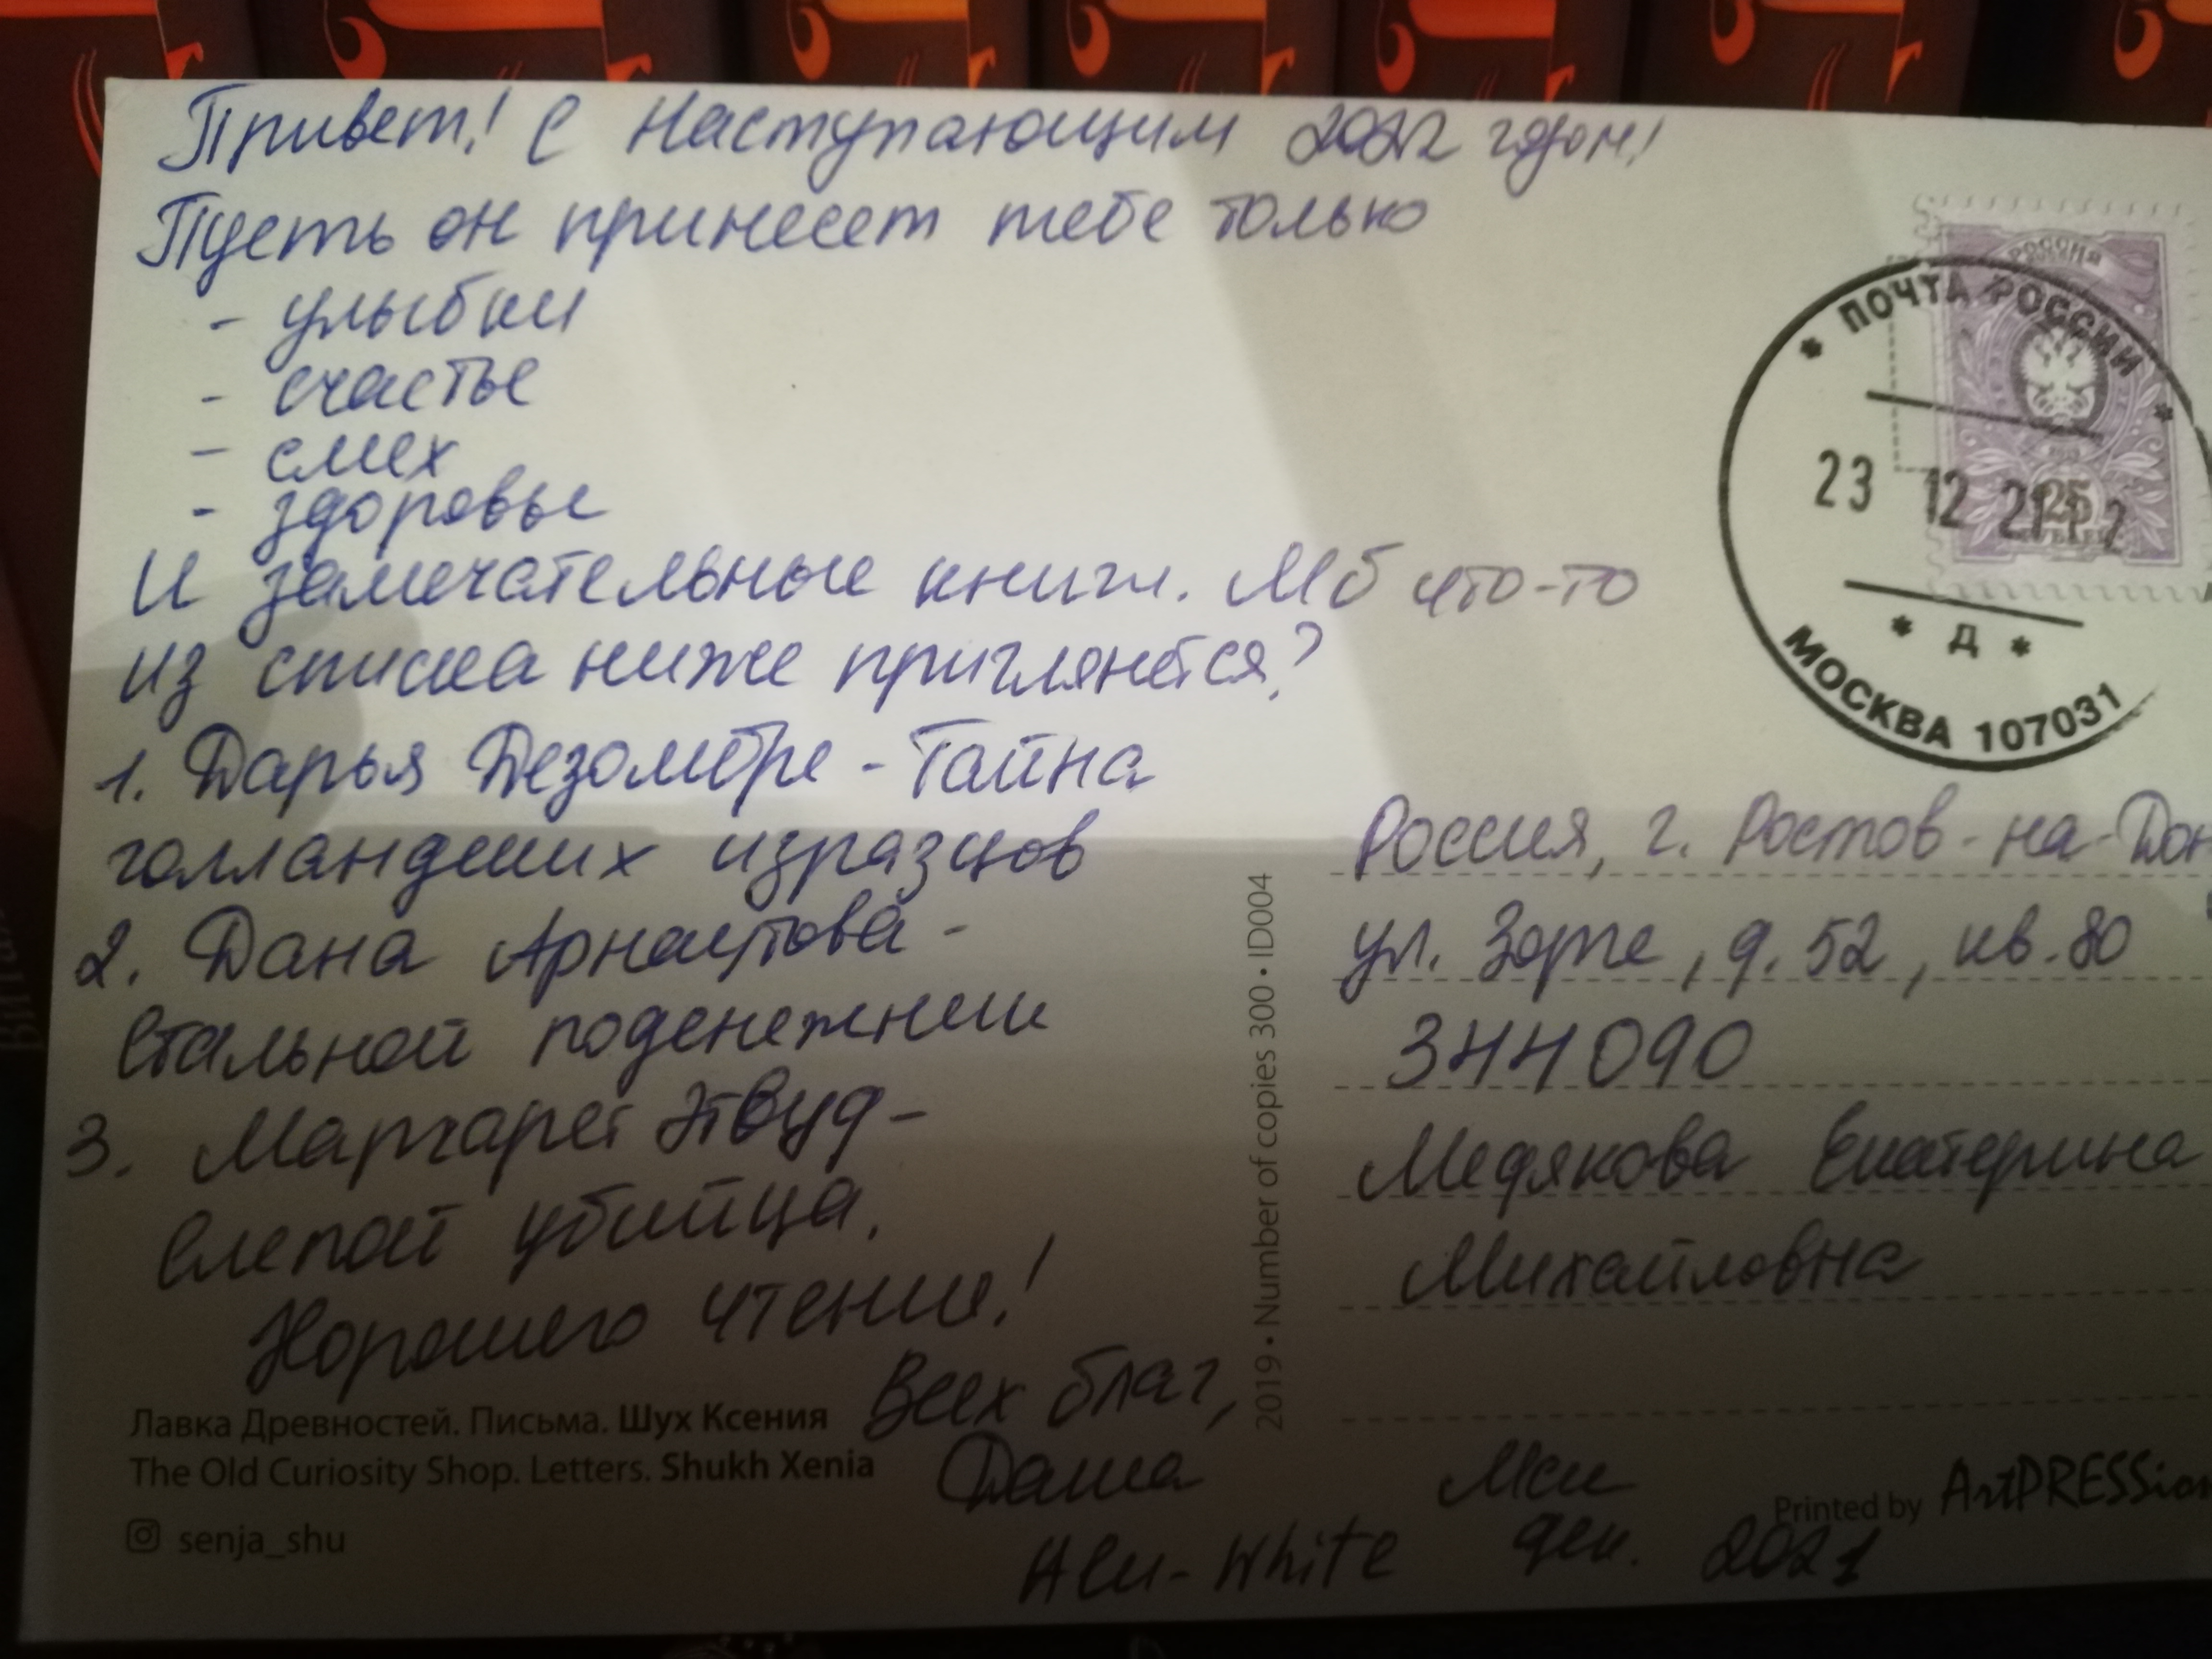 Привет! С Наступающим 2022 годом!
Пусть он принесет тебе только
- улыбки
- счастье
- смех
- здоровье
И замечательные книги. Мб что-то
из списка ниже приглянётся?
1. Дарья Дезомбре - Тайна
голландских изразцов
2. Дана Арнаутова -
Стальной подснежник
3. Маргарет Этвуд -
Слепой убийца.
Хорошего чтения!
Всех благ,
Даша
White
Мск
дек. 2021
РОССИЯ
25
* ПОЧТА РОССИИ *
23 12 21
* Д *
МОСКВА 107031
Россия, г. Ростов-на-Дон
ул. Зорге, д. 52, кв. 80
344090
Медякова Екатерина
Михайловна
2019 • Number of copies 300 • ID004
Лавка Древностей. Письма. Шух Ксения
The Old Curiosity Shop. Letters. Shukh Xenia
senja_shu
Printed by ArtPRESSion